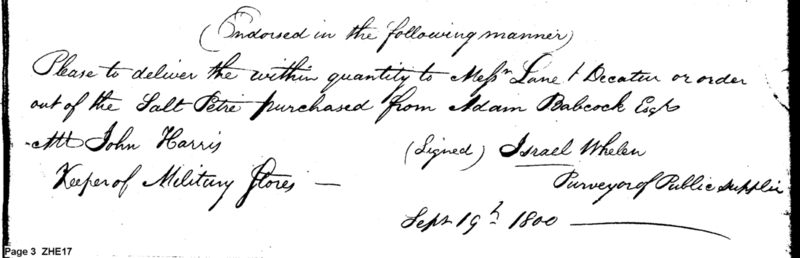 (Endorsed in the following manner)
Please to deliver the within quantity to Messrs Lane & Decatur or order
out of the Salt Petre purchased from Adam Babcock Esqr
Mr John Harris (Signed) Israel Whelen
Keeper of Military Stores — Purveyor of Public Supplies
Sept 19th 1800 —
Page 3 ZHE17